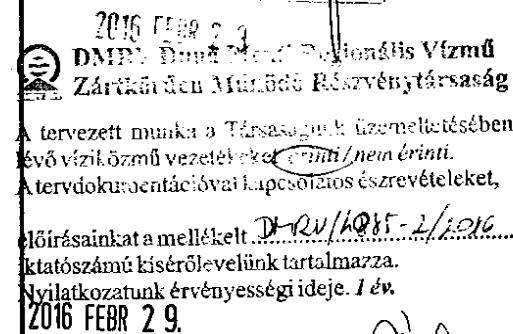 2016 FEBR
DMRV Duna Menti Regionális Vízmű
Zártkörűen Működő Részvénytársaság
A tervezett munka a Társaságunk üzemeltetésében
lévő víziközmű vezetékeket érinti/nem érinti.
A tervdokumentációval kapcsolatos észrevételeket,
előírásainkat a mellékelt DMRV/
-2/2016
iktatószámú kisérőlevelünk tartalmazza.
Nyilatkozatunk érvényességi ideje. 1 év.
2016 FEBR 29.